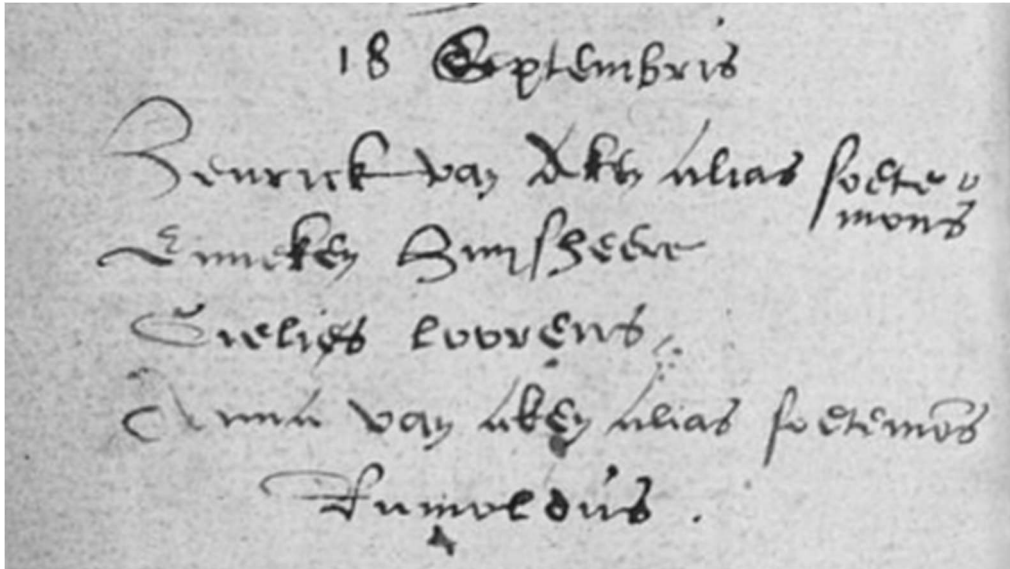 18 Septembris
Henrick van Aken alias soete-
mons
Enneken
Gielies lovrens
Anna van aken alias soetemõs
Rumoldus.